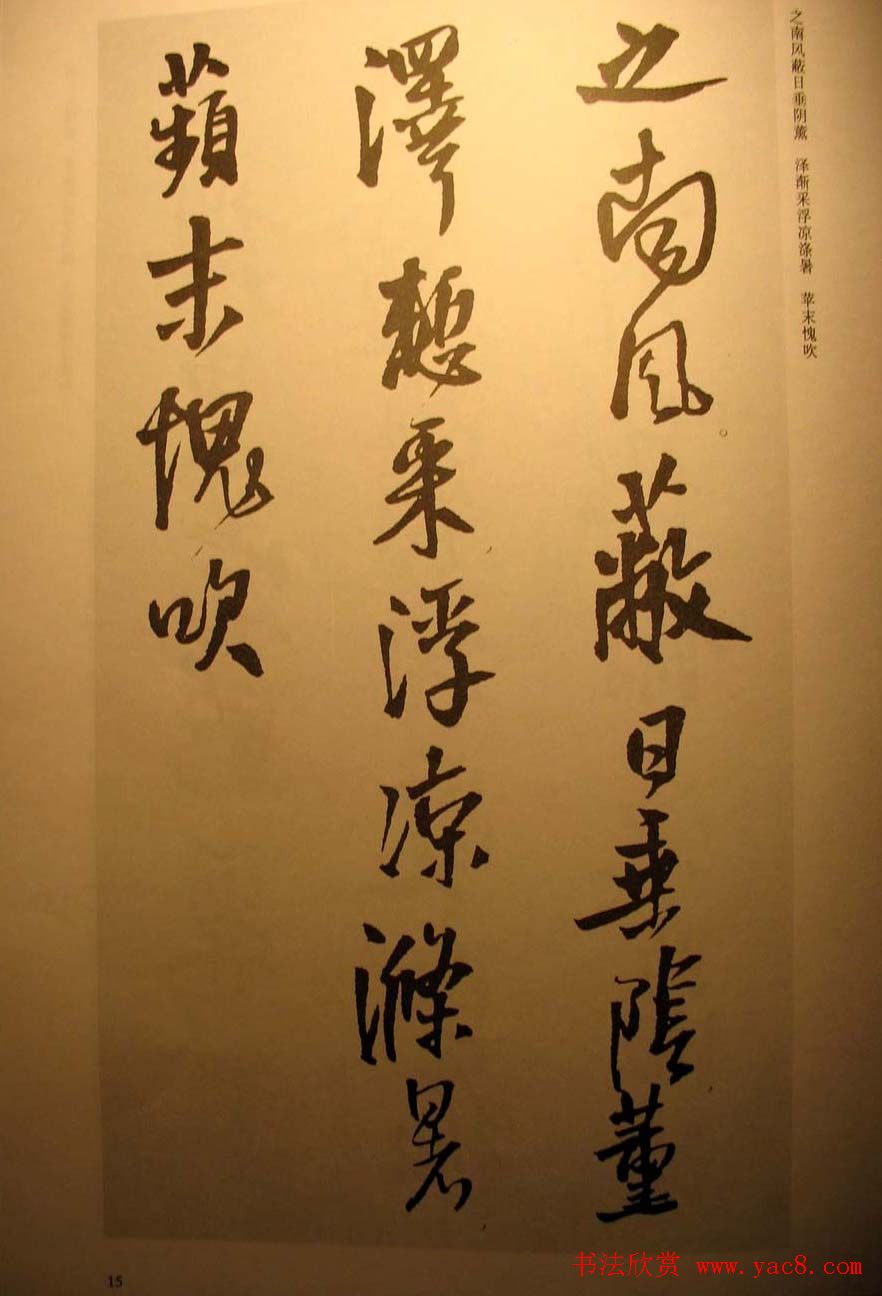 之南风蔽日垂阴薰　泽渐采浮凉涤暑　苹末愧吹
之南風蔽日垂陰薰
澤慙采浮凉滌暑
蘋末愧吹
15
书法欣赏 www.yac8.com